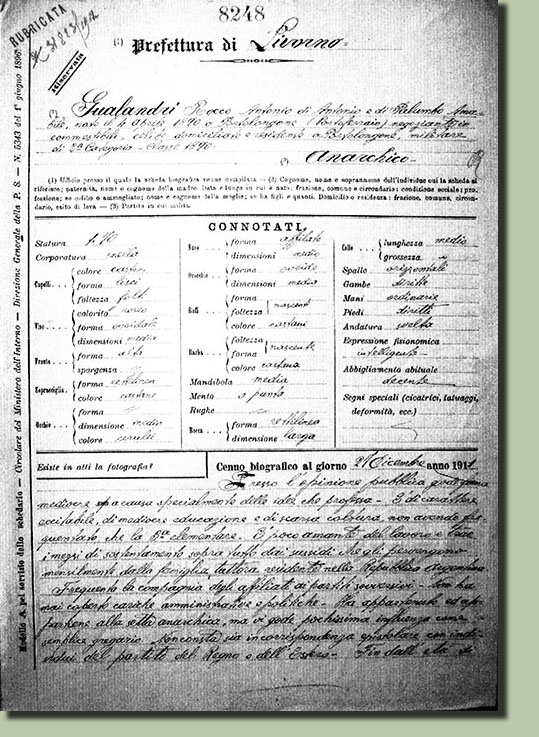 8248
RUBRICATA
Riservata
(1) Prefettura di Livorno
(2) Gualandri Rocco Antonio di Antonio e di Palumbo Ama-
bile, nato il Aprile 1890 a Portolongone (Portoferraio) negoziante in
commestibili, celibe domiciliato e residente a Portolongone, militare
di 3a Categoria classe 1890
(3) Anarchico
(1) Ufficio presso il quale la scheda biografica venne compilata — (2) Cognome, nome e soprannome dell'individuo cui la scheda si
riferisce; paternità, nome e cognome della madre. Data e luogo in cui è nato: frazione, comune e circondario; condizione sociale; pro-
fessione; se celibe o ammogliato; nome e cognome della moglie; se ha figli e quanti. Domicilio o residenza: frazione, comune, circon-
dario, esito di leva — (3) Partito in cui milita.
CONNOTATI
Statura 1.70
Corporatura snella
Capelli colore castani
forma lisci
foltezza folti
Viso colorito roseo
forma ovoidale
dimensioni media
Fronte forma alta
sporgenza
Sopracciglia forma rettilinea
colore castane
Occhio forma
dimensione medio
colore cerulei
Naso forma affilato
dimensioni medio
Orecchio forma ovoide
dimensioni medio
Baffi forma
foltezza nascenti
colore castani
Barba foltezza nascente
forma
colore castana
Mandibola media
Mento a punta
Rughe
Bocca forma rettilinea
dimensione larga
Collo lunghezza medio
grossezza
Spalle orizzontali
Gambe diritte
Mani ordinarie
Piedi diritti
Andatura svelta
Espressione fisionomica
intelligente
Abbigliamento abituale
decente
Segni speciali (cicatrici, tatuaggi,
deformità, ecc.)
Esiste in atti la fotografia?
Cenno biografico al giorno 21 Dicembre anno 1911
Presso l'opinione pubblica gode fama
mediocre a causa specialmente delle idee che professa. È di carattere
eccitabile, di mediocre educazione e di scarsa coltura, non avendo fre-
quentato che la 5a elementare. È poco amante del lavoro e trae
i mezzi di sostentamento sopra tutto dai sussidi che gli pervengono
mensilmente dalla famiglia, tuttora residente nella Repubblica Argentina
Frequenta la compagnia degli affiliati di partiti sovversivi. Non ha
mai coperto cariche amministrative e politiche. Ha appartenuto ed ap-
partiene alla setta anarchica, ma vi gode pochissima influenza come
semplice gregario. Non consta sia in corrispondenza epistolare con indi-
vidui del partito del Regno o dell'Estero. Fin dall'età di
Modello A pel servizio dello schedario — Circolare del Ministero dell'Interno — Direzione Generale della P. S. — N. 5343 del 1° giugno 1896